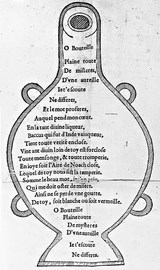 O Bouteille
Plaine toute
De misteres,
D'vne aureille
Ie t'escoute
Ne differes,
Et le mot proferes,
Auquel pend mon cœur.
En la tant diuine liqueur,
Baccus qui fut d'Inde vainqueur,
Tient toute verité enclose.
Vin tant diuin loin de toy est forclose
Toute mensonge, & toute tromperie.
En ioye soit l'Aire de Noach close,
Lequel de toy nous fist la temperie.
Sonne le beau mot,
Qui me doit oster de misere.
Ainsi ne se perde vne goutte.
De toy, soit blanche ou soit vermeille.
O Bouteille
Plaine toute
De mysteres
D'vne aureille
Ie t'escoute
Ne differes.